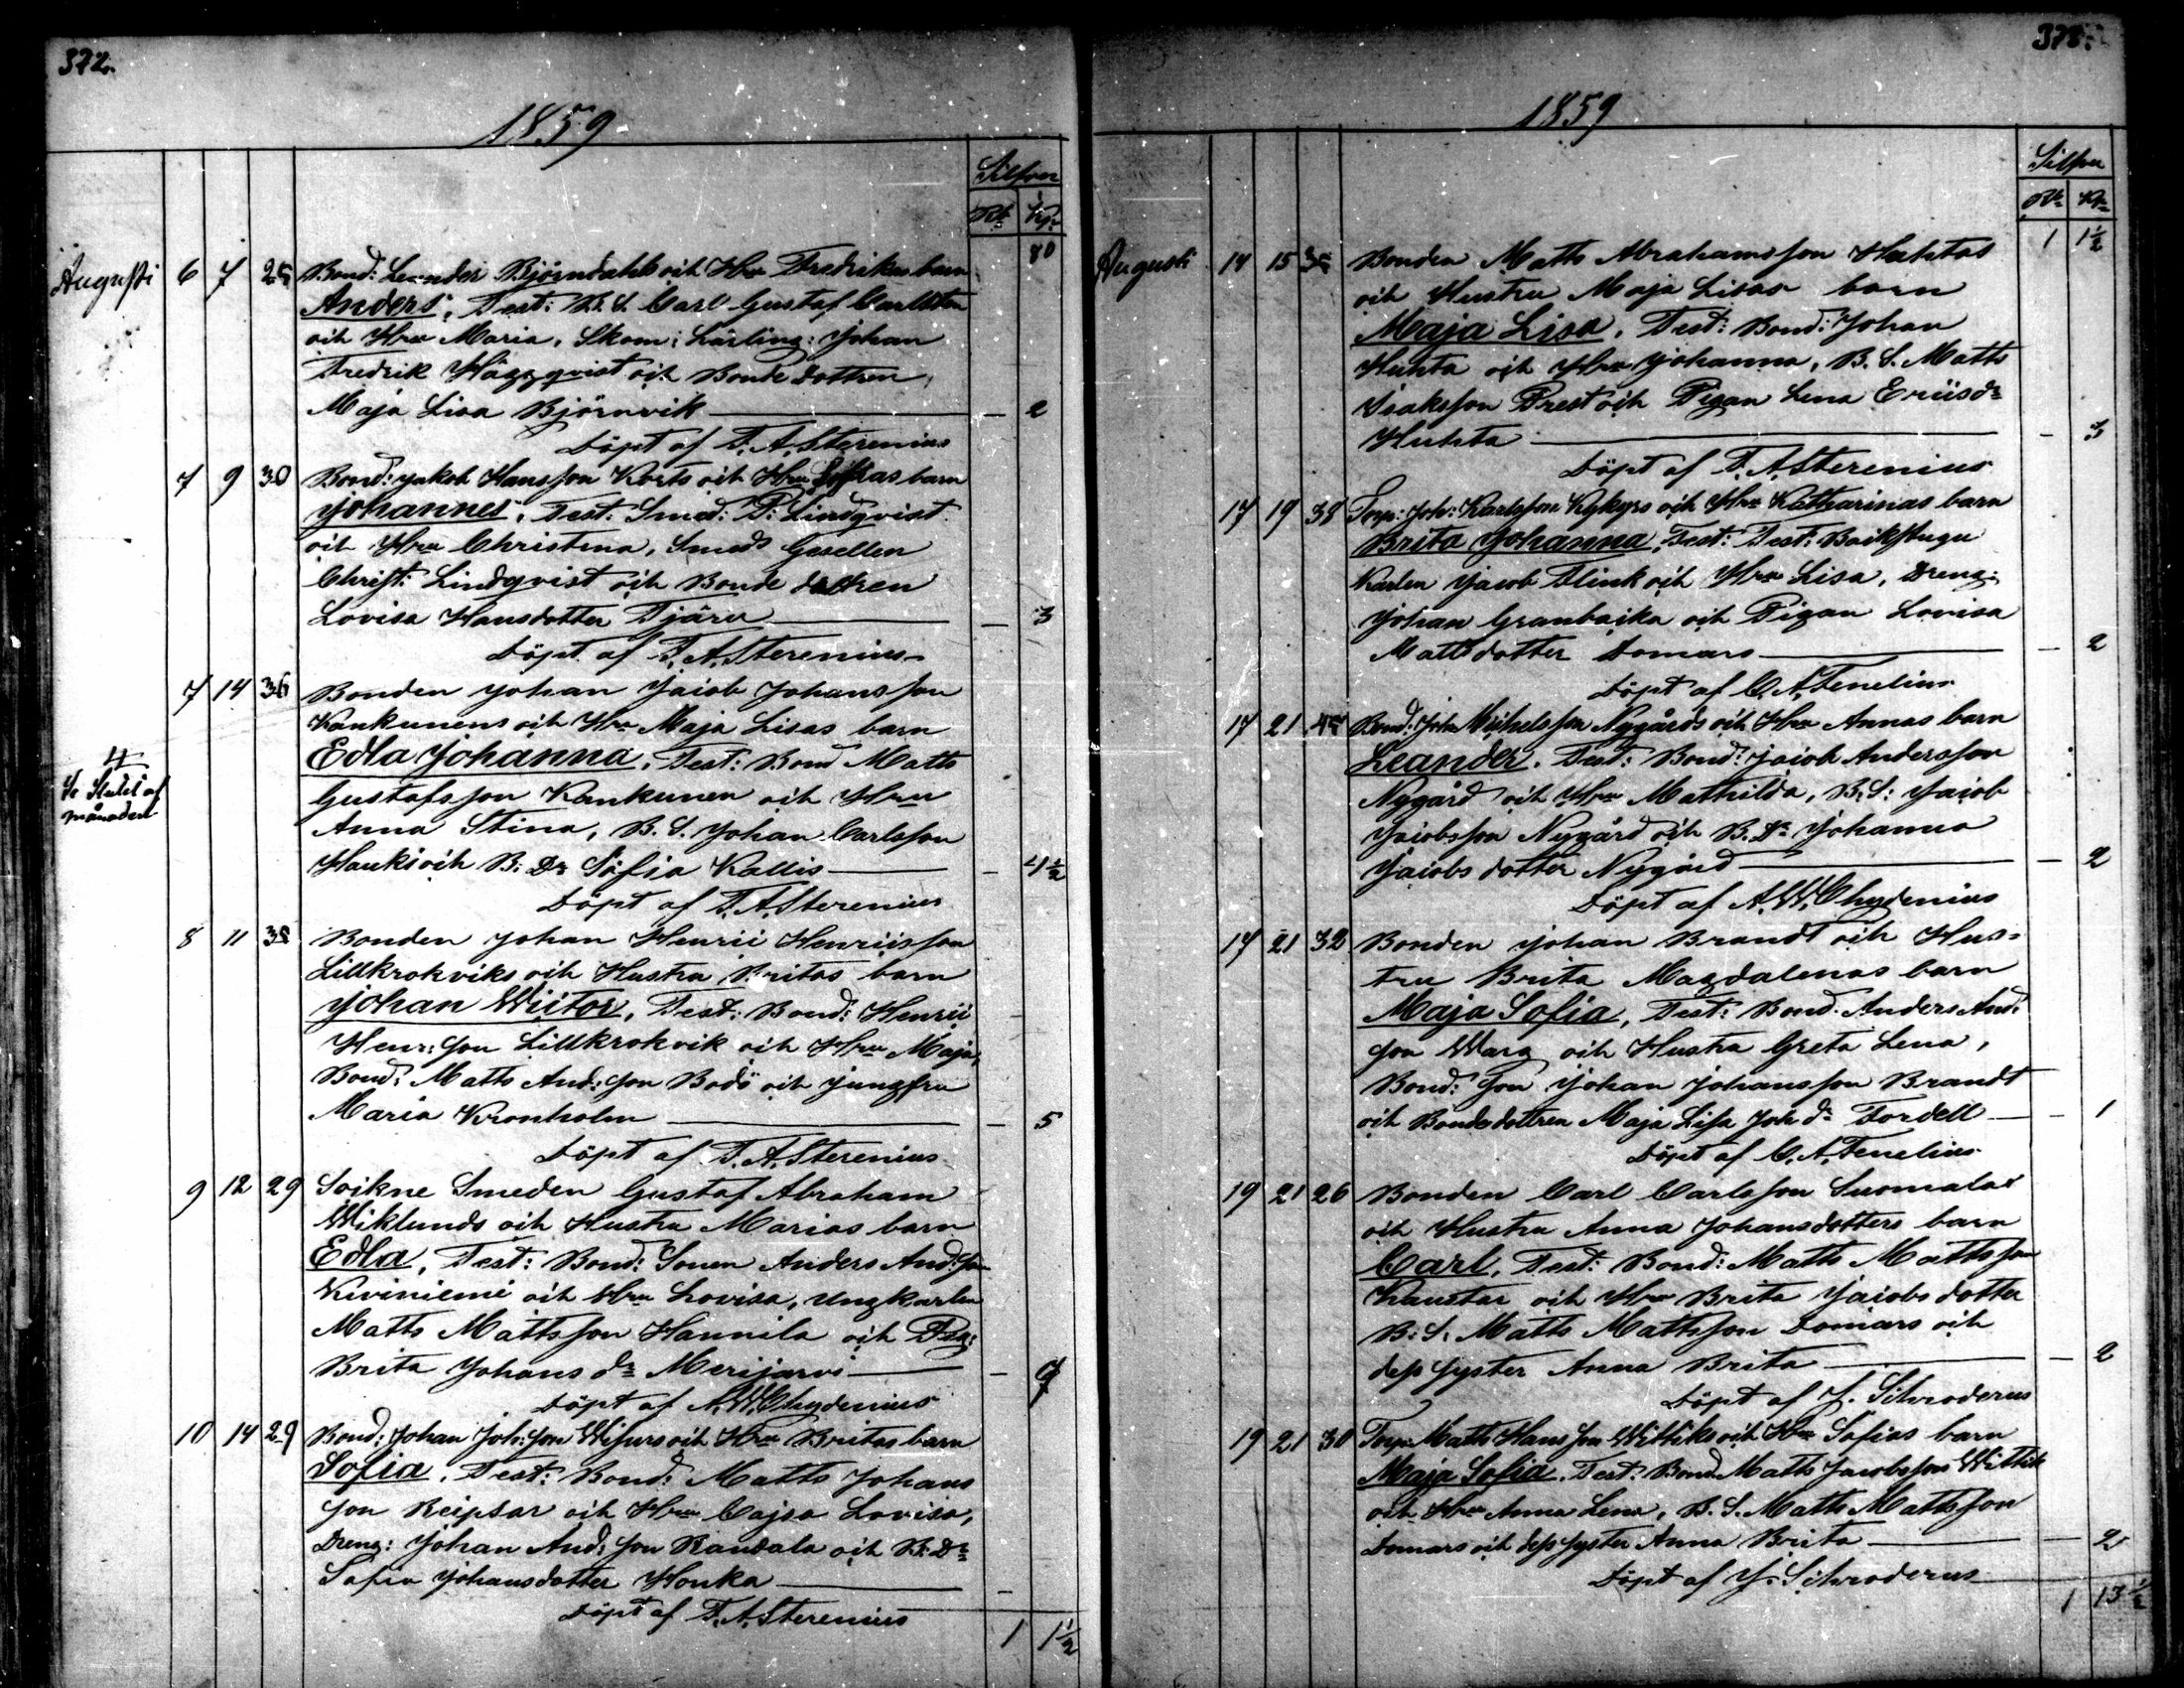 372.
1859
Silfver
Rb Kp.
80
Augusti 6 7 25 Bond: Leander Björndahls och Hru Fredrikas barn
Anders, Test: B. S. Carl Gustaf Carlsten
och Hru Maria, Skom: Lärling: Johan
Fredrik Häggqvist och Bonde dottren
Maja Lisa Björnvik — 2
Döpt af F. A. Sterenius
7 9 30 Bond: Jakob Hansson Korts och Hru barn
Johannes, Test: Smed: P: Lindqvist
och Hru Christina, Smeds Gesellen
Christ: Lindqvist och Bonde dottren
Lovisa Hansdotter Tjäru — 3
Döpt af F. A. Sterenius
7 14 36 Bonden Johan Jacob Johansson
Kankunens och Hru Maja Lisas barn
Edla Johanna, Test: Bond Matts
Gustafsson Kankunen och Hru
Anna Stina, B. S. Johan Carlsson
Hauki och B: Dr Sofia Kallis — 4½
Döpt af F. A. Sterenius
Se Slutet af
månaden
8 11 38 Bonden Johan Henric Henricsson
Lillkrokviks och Hustru Britas barn
Johan Wictor, Test: Bond: Henric
Henr: son Lillkrokvik och Hru Maja,
Bond: Matts And: son Bodö och jungfru
Maria Kronholm — 5
Döpt af F. A. Sterenius
9 12 29 Sockne Smeden Gustaf Abraham
Wiklunds och Hustru Marias barn
Edla, Test: Bond: Sonen Anders And: son
Kiviniemi och Hru Lovisa, Ungkarlen
Matts Mattsson Hannila och Pig:
Brita Johans dr Merijärvi —
Döpt af A. W. Chydenius
10 14 29 Bond: Johan Joh: son Wisurs och Hru Britas barn
Sofia, Test: Bond: Matts Johans
son Reipsar och Hru Cajsa Lovisa,
Dreng: Johan And: son Randala och B: Dr
Sofia Johansdotter Honka —
Döpt af F. A. Sterenius
1 1½
1859
Silfver
Rb Kp
1 1½
Augusti 14 15 Bonden Matts Abrahamsson Huhtas
och Hustru Maja Lisas barn
Maja Lisa, Test: Bond: Johan
Huhta och Hru Johanna, B. S. Matts
Isaksson Prest och Pigan Lena Ericsdr
Huhta — 3
Döpt af F. A. Sterenius
17 19 38 Torp: Joh: Karlsson Kykyrs och Hru Katharinas barn
Brita Johanna, Test: Test: Backstugu
Karlen Jacob Flink och Hru Lisa, Dreng:
Johan Granbacka och Pigan Lovisa
Mattsdotter Domars — 2
Döpt af C. A. Fenelius
17 21 Bond: Joh Michelsson Nygårds och Hru Annas barn
Leander, Test: Bond: Jacob Andersson
Nygård och Hru Mathilda, B: S: Jacob
Jacobsson Nygård och B. Dr Johanna
Jacobs dotter Nygård — 2
Döpt af A. W. Chydenius
17 21 32 Bonden Johan Brandt och Hus-
tru Brita Magdalenas barn
Maja Sofia, Test: Bond: Anders And:
son Warg och Hustru Greta Lena,
Bond: son Johan Johansson Brandt
och Bondedottren Maja Lisa Joh dr Fordell — 1
Döpt af C. A. Fenelius
19 21 26 Bonden Carl Carlsson Suomalas
och Hustru Anna Johansdotters barn
Carl, Test: Bond: Matts Mattsson
Kaustar och Hru Brita Jacobs dotter
B: S: Matts Mattsson Domars och
dess syster Anna Brita — 2
Döpt af J. Schroderus
19 21 30 Torp: Matts Hansson Wittiks och Hru Sofias barn
Maja Sofia, Test: Bond Matts Jacobsson Wittik
och Hru Anna Lena, B. S. Matts Mattsson
Domars och dess syster Anna Brita — 2
Döpt af J. Schroderus
1 13½